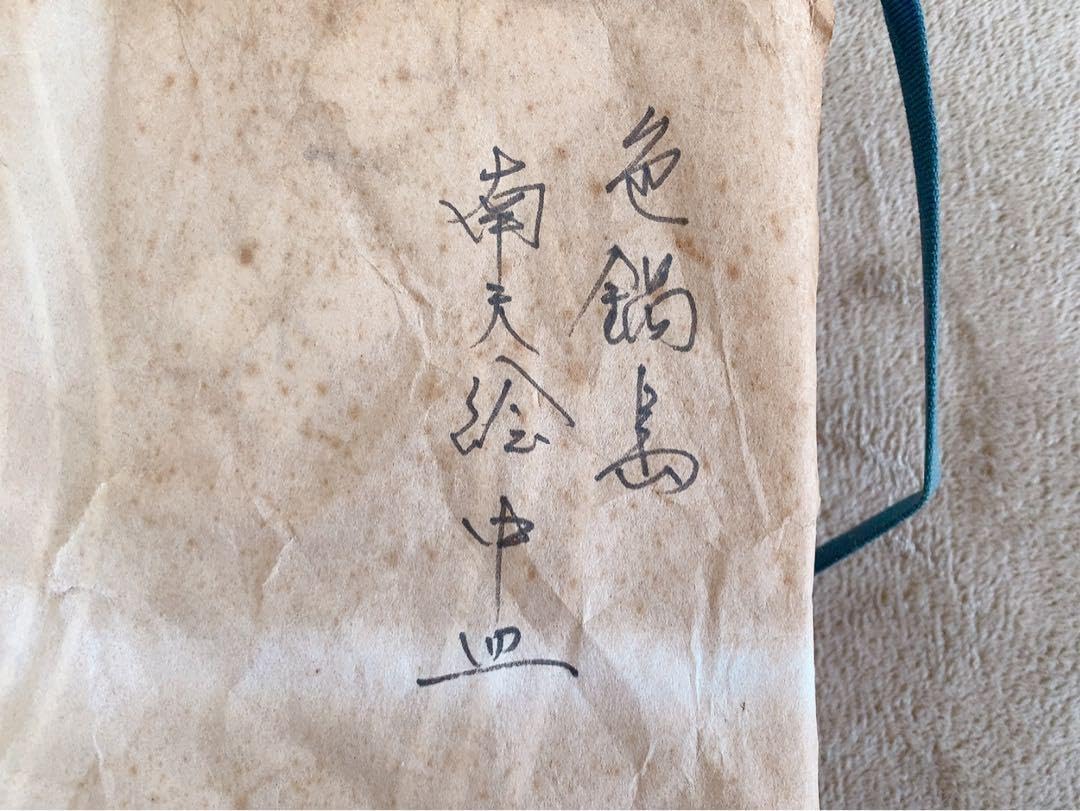 色鍋島
南天絵中皿